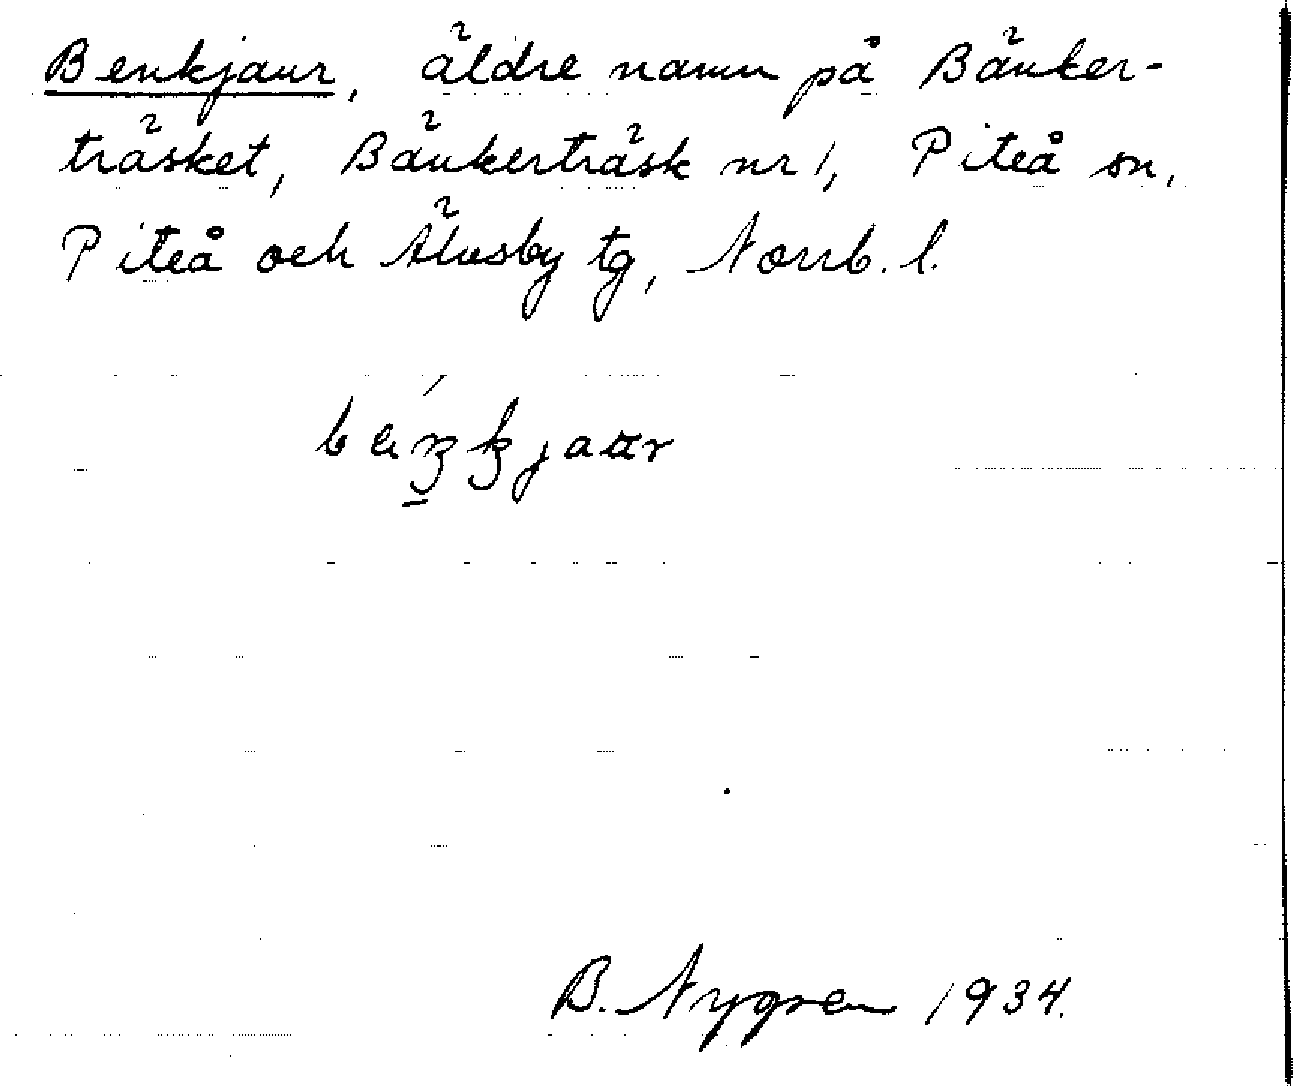 Benkjaur, äldre namn på Bänker-
träsket, Bänkerträsk nr 1, Piteå sn,
Piteå och Älvsby tg, Norrb. l.
B. Nygren 1934.